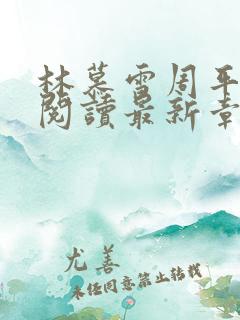 林慕雪周平
閱讀最新章
尤善
未经同意禁止转载